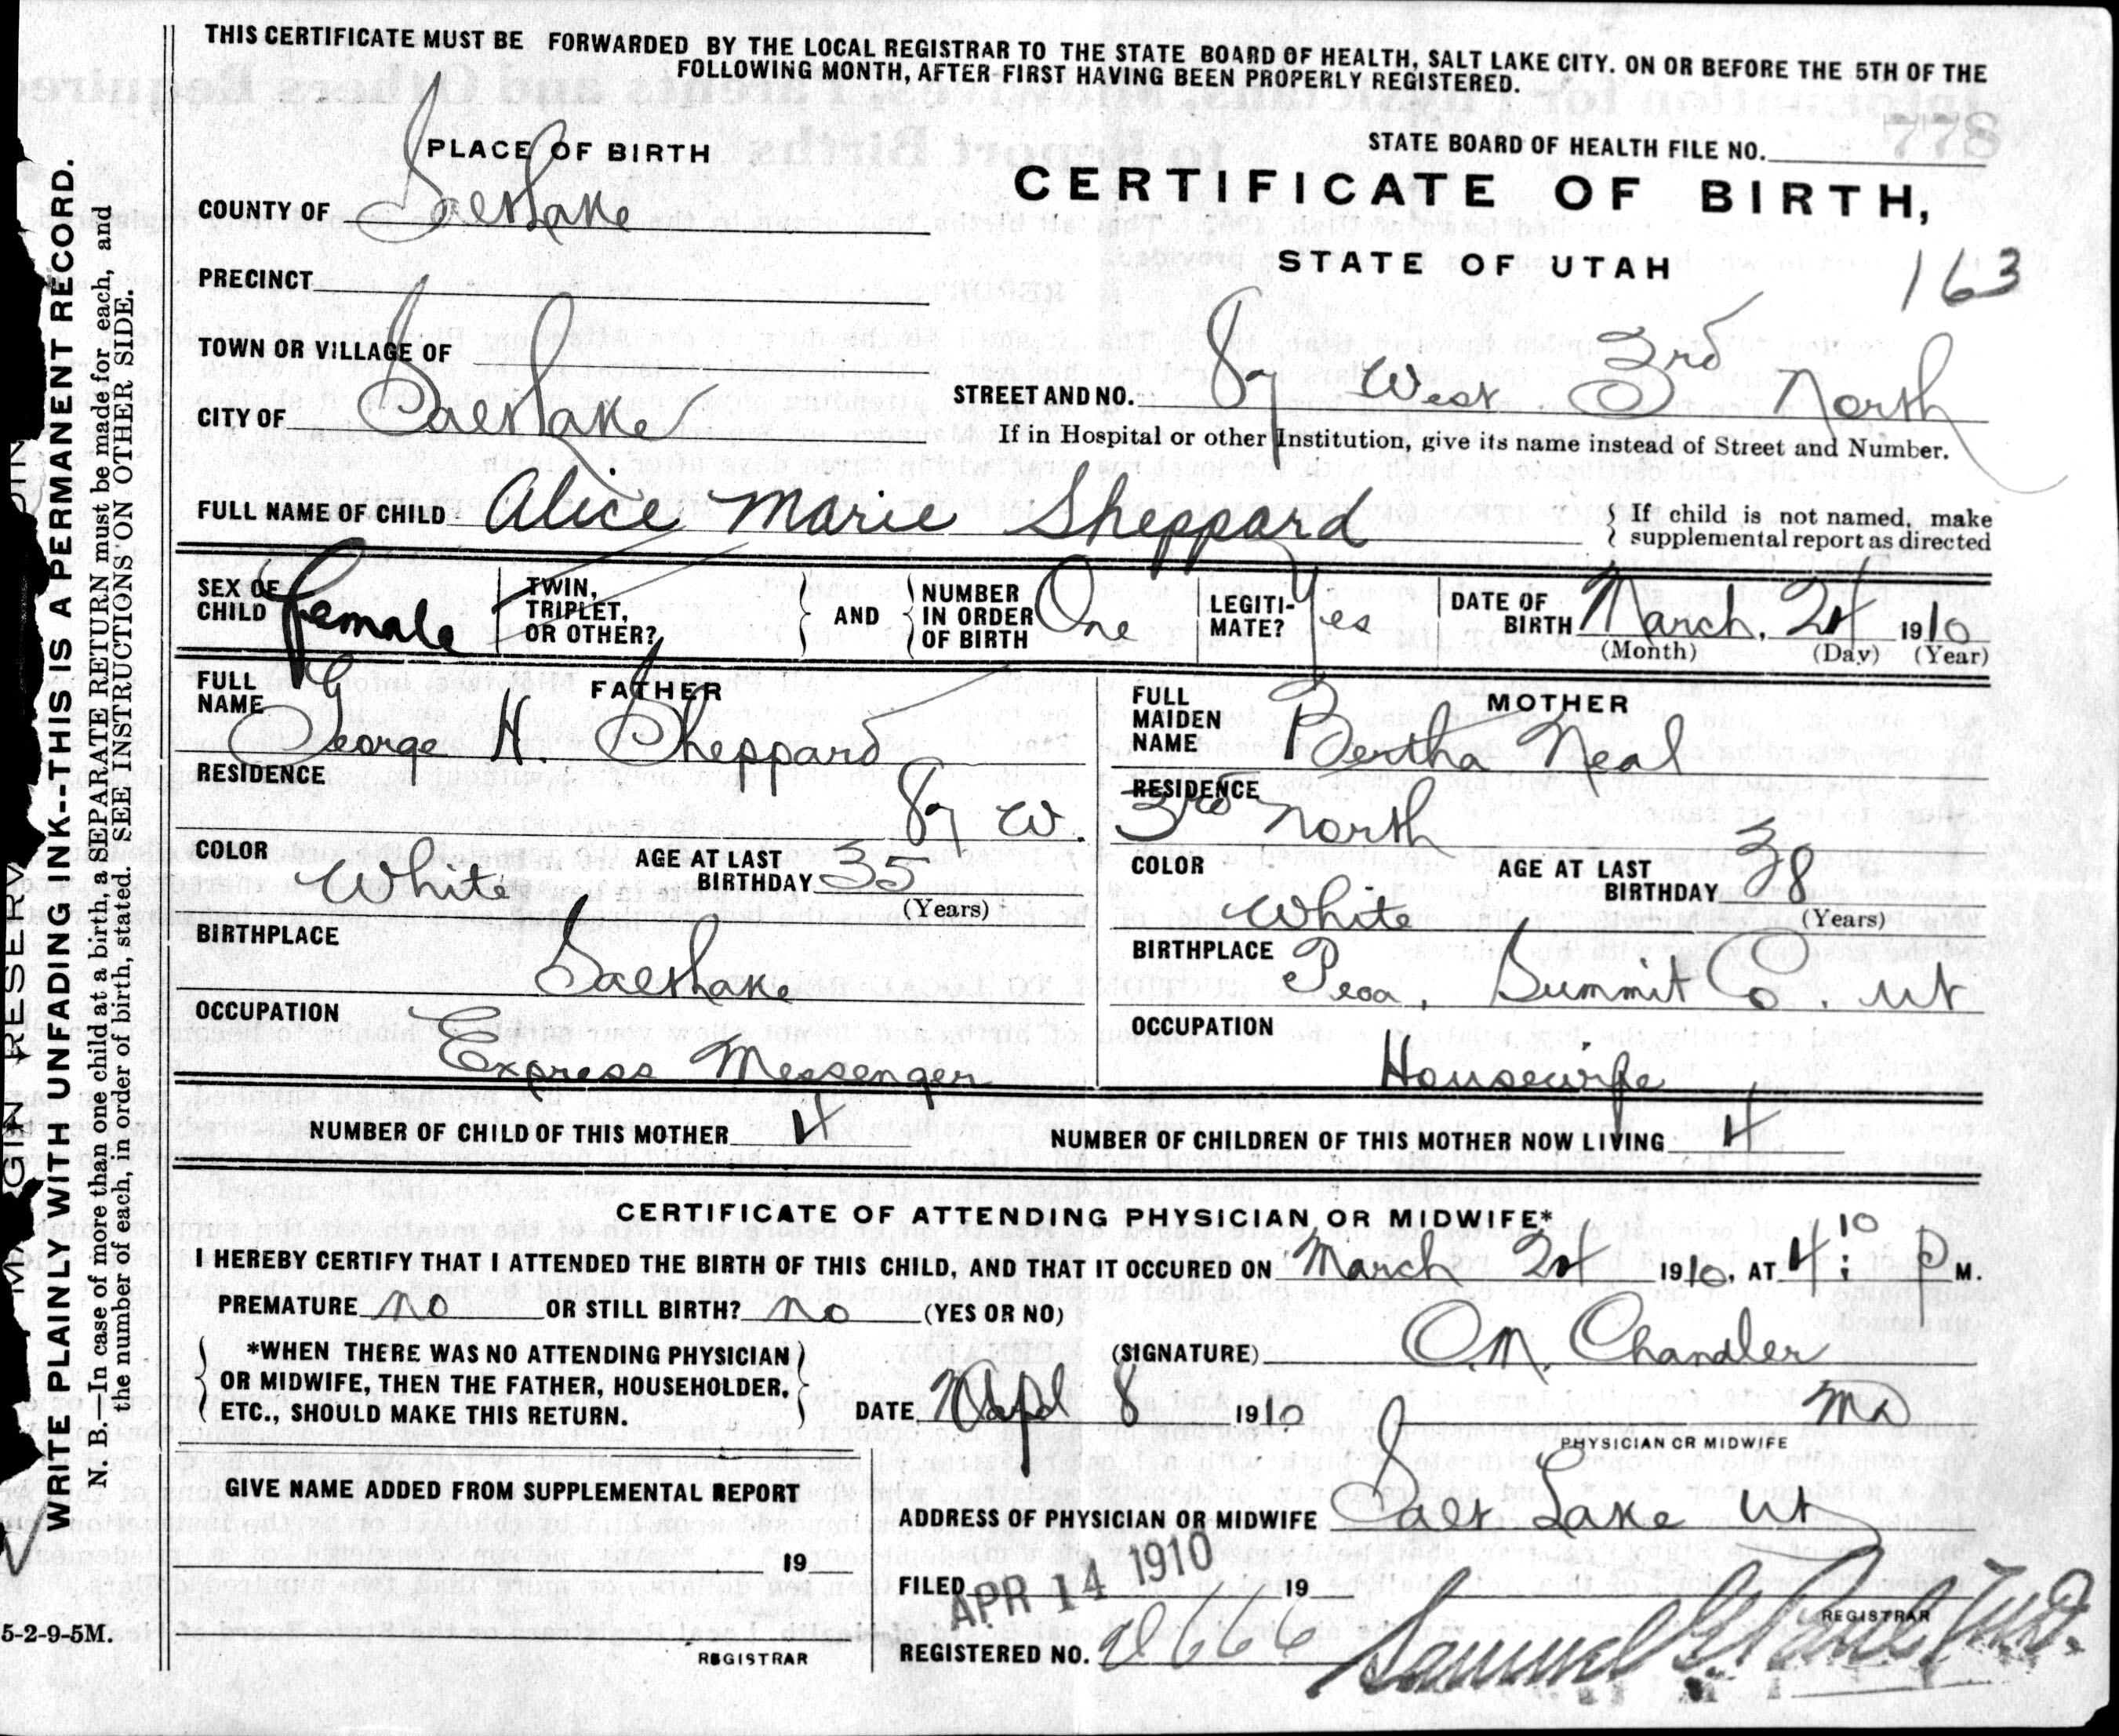 THIS CERTIFICATE MUST BE FORWARDED BY THE LOCAL REGISTRAR TO THE STATE BOARD OF HEALTH, SALT LAKE CITY, ON OR BEFORE THE 5TH OF THE
FOLLOWING MONTH, AFTER FIRST HAVING BEEN PROPERLY REGISTERED.
PLACE OF BIRTH
STATE BOARD OF HEALTH FILE NO.
CERTIFICATE OF BIRTH,
COUNTY OF Salt Lake
STATE OF UTAH
163
PRECINCT
TOWN OR VILLAGE OF
CITY OF Salt Lake
STREET AND NO. 87 West 3rd North
If in Hospital or other Institution, give its name instead of Street and Number.
FULL NAME OF CHILD Alice Marie Sheppard
If child is not named, make
supplemental report as directed
SEX OF CHILD Female
TWIN, TRIPLET, OR OTHER?
AND
NUMBER IN ORDER OF BIRTH One
LEGITI-MATE? Yes
DATE OF BIRTH March, 24 1910
(Month) (Day) (Year)
FATHER
FULL NAME George H. Sheppard
MOTHER
FULL MAIDEN NAME Bertha Neal
RESIDENCE 87 W.
RESIDENCE 3rd North
COLOR White
AGE AT LAST BIRTHDAY 35
(Years)
COLOR White
AGE AT LAST BIRTHDAY 38
(Years)
BIRTHPLACE Salt Lake
BIRTHPLACE Peoa, Summit Co. Ut
OCCUPATION Express Messenger
OCCUPATION Housewife
NUMBER OF CHILD OF THIS MOTHER 4
NUMBER OF CHILDREN OF THIS MOTHER NOW LIVING 4
CERTIFICATE OF ATTENDING PHYSICIAN OR MIDWIFE*
I HEREBY CERTIFY THAT I ATTENDED THE BIRTH OF THIS CHILD, AND THAT IT OCCURED ON March 24 1910, AT 4:10 P M.
PREMATURE no OR STILL BIRTH? no (YES OR NO)
*WHEN THERE WAS NO ATTENDING PHYSICIAN
OR MIDWIFE, THEN THE FATHER, HOUSEHOLDER,
ETC., SHOULD MAKE THIS RETURN.
(SIGNATURE) O.M. Chandler
DATE Apl 8 1910
MD
PHYSICIAN OR MIDWIFE
GIVE NAME ADDED FROM SUPPLEMENTAL REPORT
ADDRESS OF PHYSICIAN OR MIDWIFE Salt Lake Ut
19
FILED APR 14 1910 19
REGISTRAR
REGISTERED NO.
Samuel G. Paul M.D.
REGISTRAR
5-2-9-5M.
WRITE PLAINLY WITH UNFADING INK--THIS IS A PERMANENT RECORD.
N. B.—In case of more than one child at a birth, a SEPARATE RETURN must be made for each, and
the number of each, in order of birth, stated. SEE INSTRUCTIONS ON OTHER SIDE.